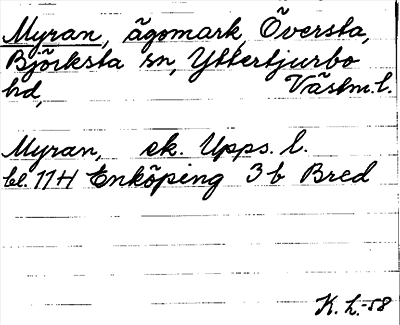 Myran, ägomark, Översta,
Björksta sn, Yttertjurbo
hd, Västm.l.
Myran, ek. Upps. l.
bl. 11H Enköping 3b Bred
K. L.-58